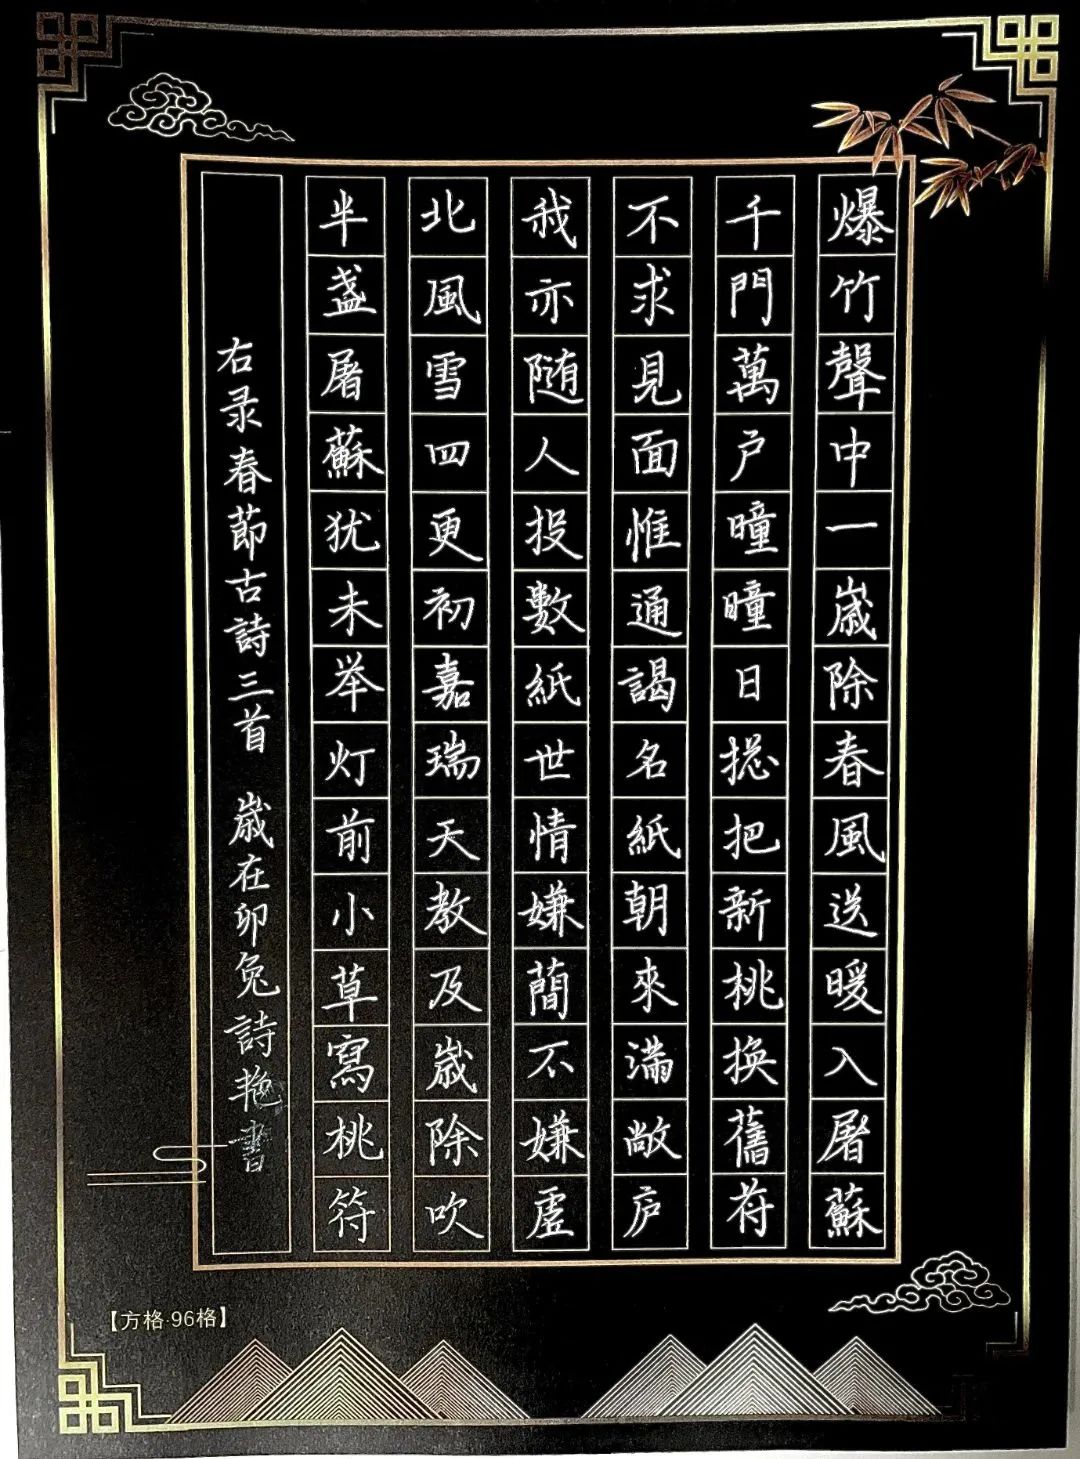 爆竹聲中一歲除春風送暖入屠蘇
千門萬户曈曈日搃把新桃換舊苻
不求見面惟通謁名紙朝來满敝庐
我亦随人投數紙世情嫌蕳不嫌虗
北風雪四更初嘉瑞天教及歲除吹
半盏屠蘇犹未举灯前小草寫桃符
右录春節古詩三首 歲在卯兔詩艳書
【方格·96格】